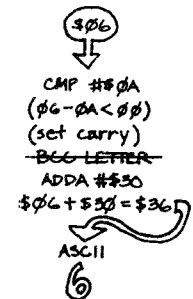 $06
CMP #$0A
(06-0A<00)
(set carry)
BCC LETTER
ADDA #$30
$06+$30=$36
ASCII
6